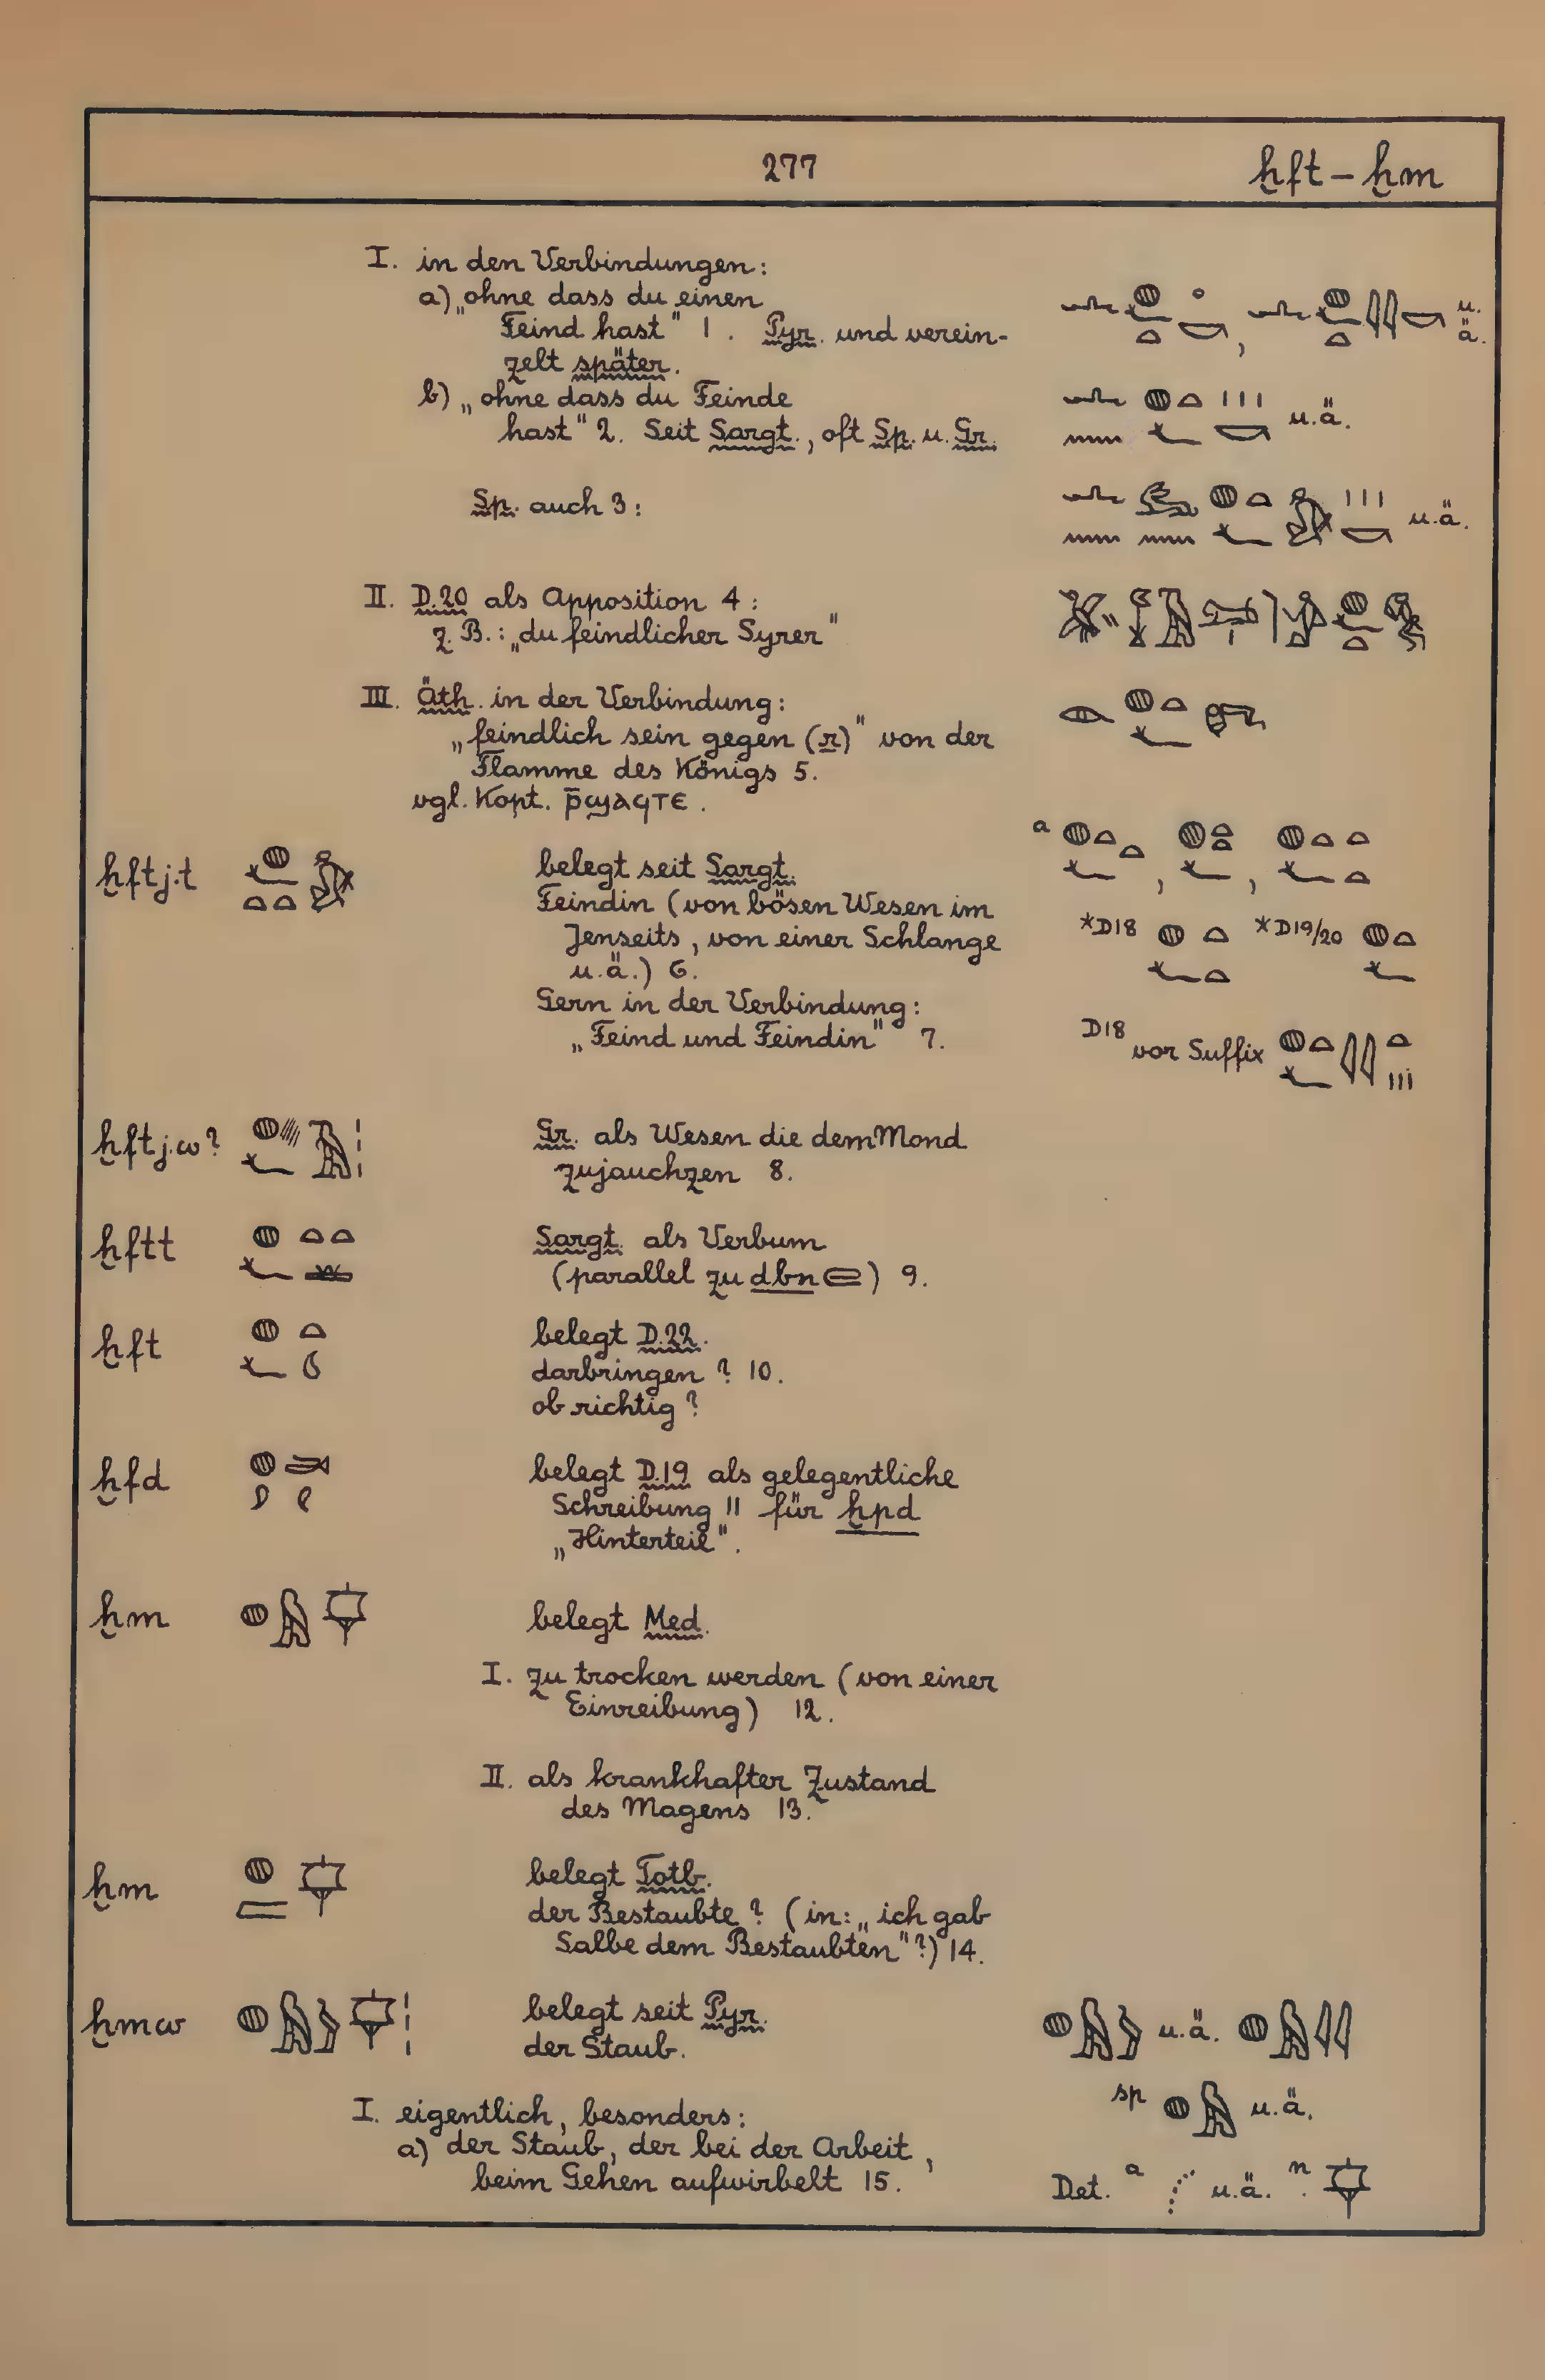 277
ḫft – ḫm
I. in den Verbindungen:
a) „ohne dass du einen
Feind hast" 1. Pyr. und verein-
zelt später.
u.
ä.
b) „ohne dass du Feinde
hast" 2. Seit Sargt., oft Sp. u. Gr.
u.ä.
Sp. auch 3:
u.ä.
II. D.20 als Apposition 4:
z.B.: „du feindlicher Syrer"
III. Äth. in der Verbindung:
„feindlich sein gegen (r)" von der
Flamme des Königs 5.
vgl. Kopt. ⲣ̄ϣⲁϥⲧⲉ.
ḫftj.t
belegt seit Sargt.
a
Feindin (von bösen Wesen im
Jenseits, von einer Schlange
u.ä.) 6.
*D18 *D19/20
Gern in der Verbindung:
„Feind und Feindin" 7.
D18 vor Suffix
ḫftj.w?
Gr. als Wesen die dem Mond
zujauchzen 8.
ḫftt
Sargt. als Verbum
(parallel zu dbn) 9.
ḫft
belegt D.22.
darbringen? 10.
ob richtig?
ḫfd
belegt D.19 als gelegentliche
Schreibung 11 für ḫpd
„Hinterteil".
ḫm
belegt Med.
I. zu trocken werden (von einer
Einreibung) 12.
II. als krankhafter Zustand
des Magens 13.
ḫm
belegt Totb.
der Bestaubte? (in: „ich gab
Salbe dem Bestaubten"?) 14.
ḫmw
belegt seit Pyr.
der Staub.
u.ä.
sp u.ä.
I. eigentlich, besonders:
a) der Staub, der bei der Arbeit,
beim Gehen aufwirbelt 15.
Det. a u.ä. n.